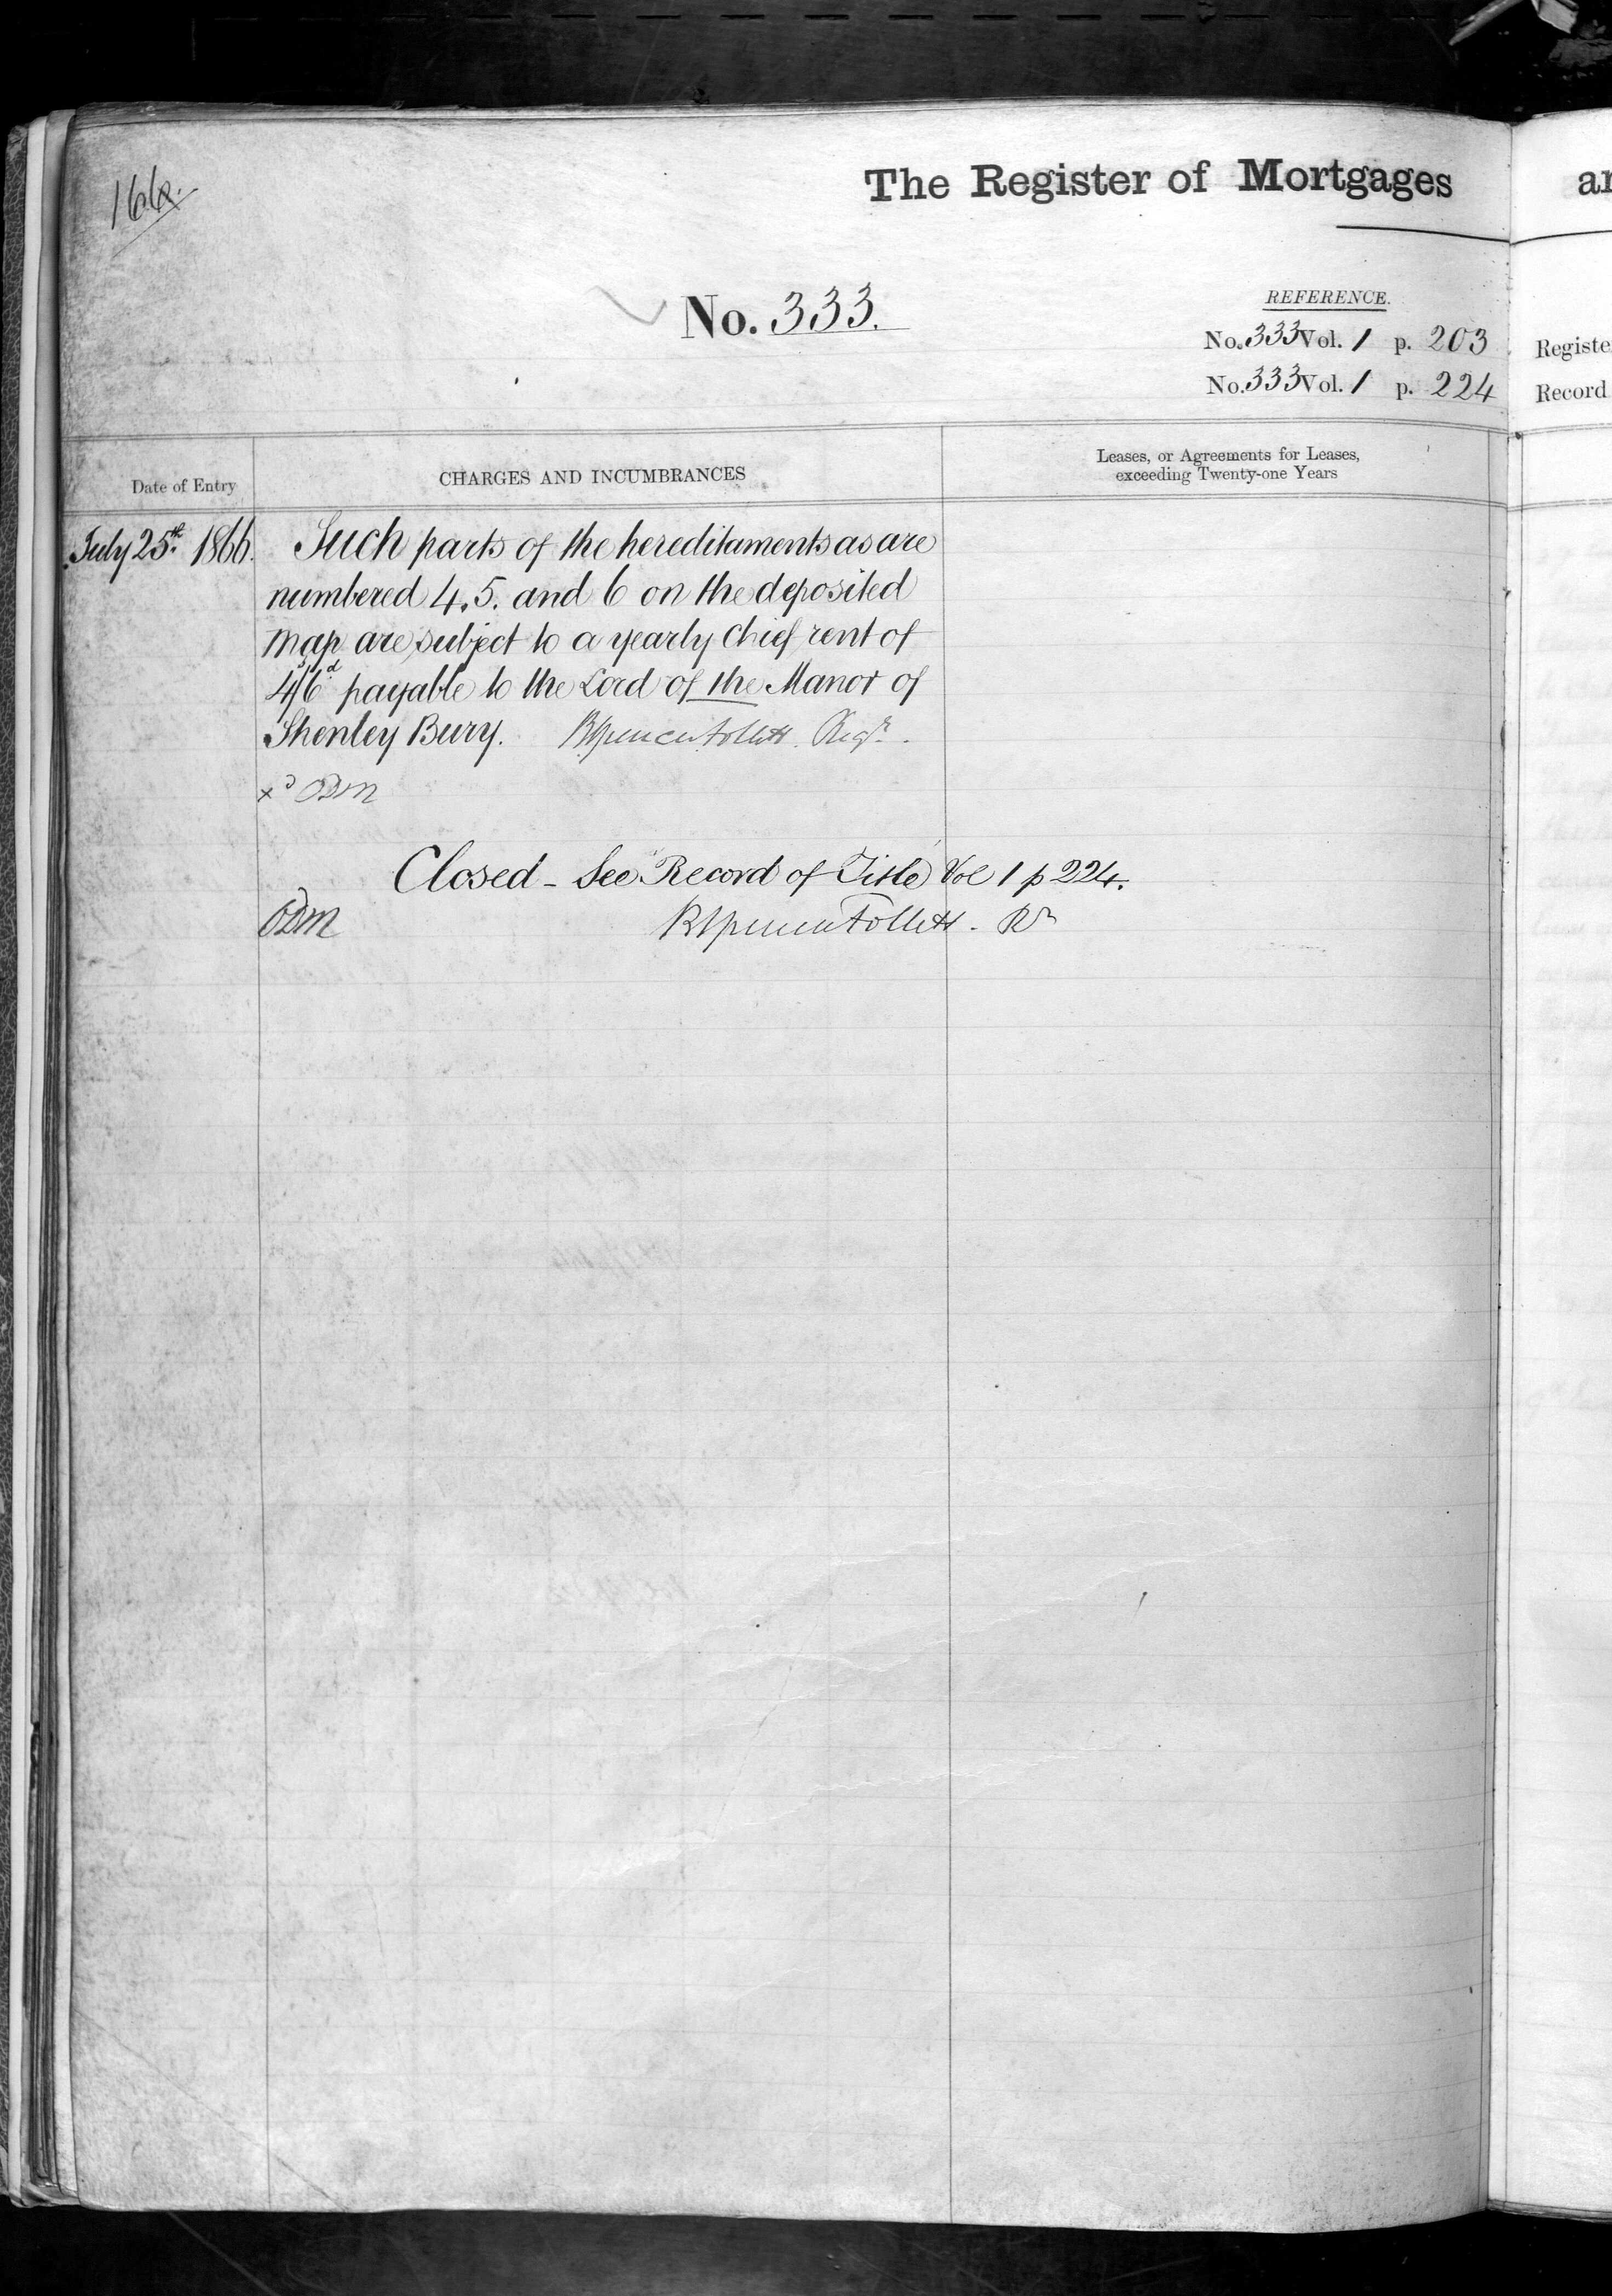 The Register of Mortgages
No. 333.
REFERENCE.
No. 333 Vol. 1 p. 203
No. 333 Vol. 1 p. 224
Registe
Record
Date of Entry
CHARGES AND INCUMBRANCES
Leases, or Agreements for Leases,
exceeding Twenty-one Years
July 25th 1866.
Such parts of the hereditaments as are
numbered 4. 5. and 6 on the deposited
Map are subject to a yearly Chief rent of
4s/6d payable to the Lord of the Manor of
Shenley Bury. B Spencer Follett. Regr.
xd ODM
Closed - See Record of Title Vol 1 p 224.
ODM B Spencer Follett - Rr